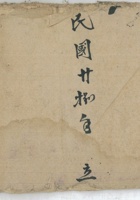 民國廿捌年 立